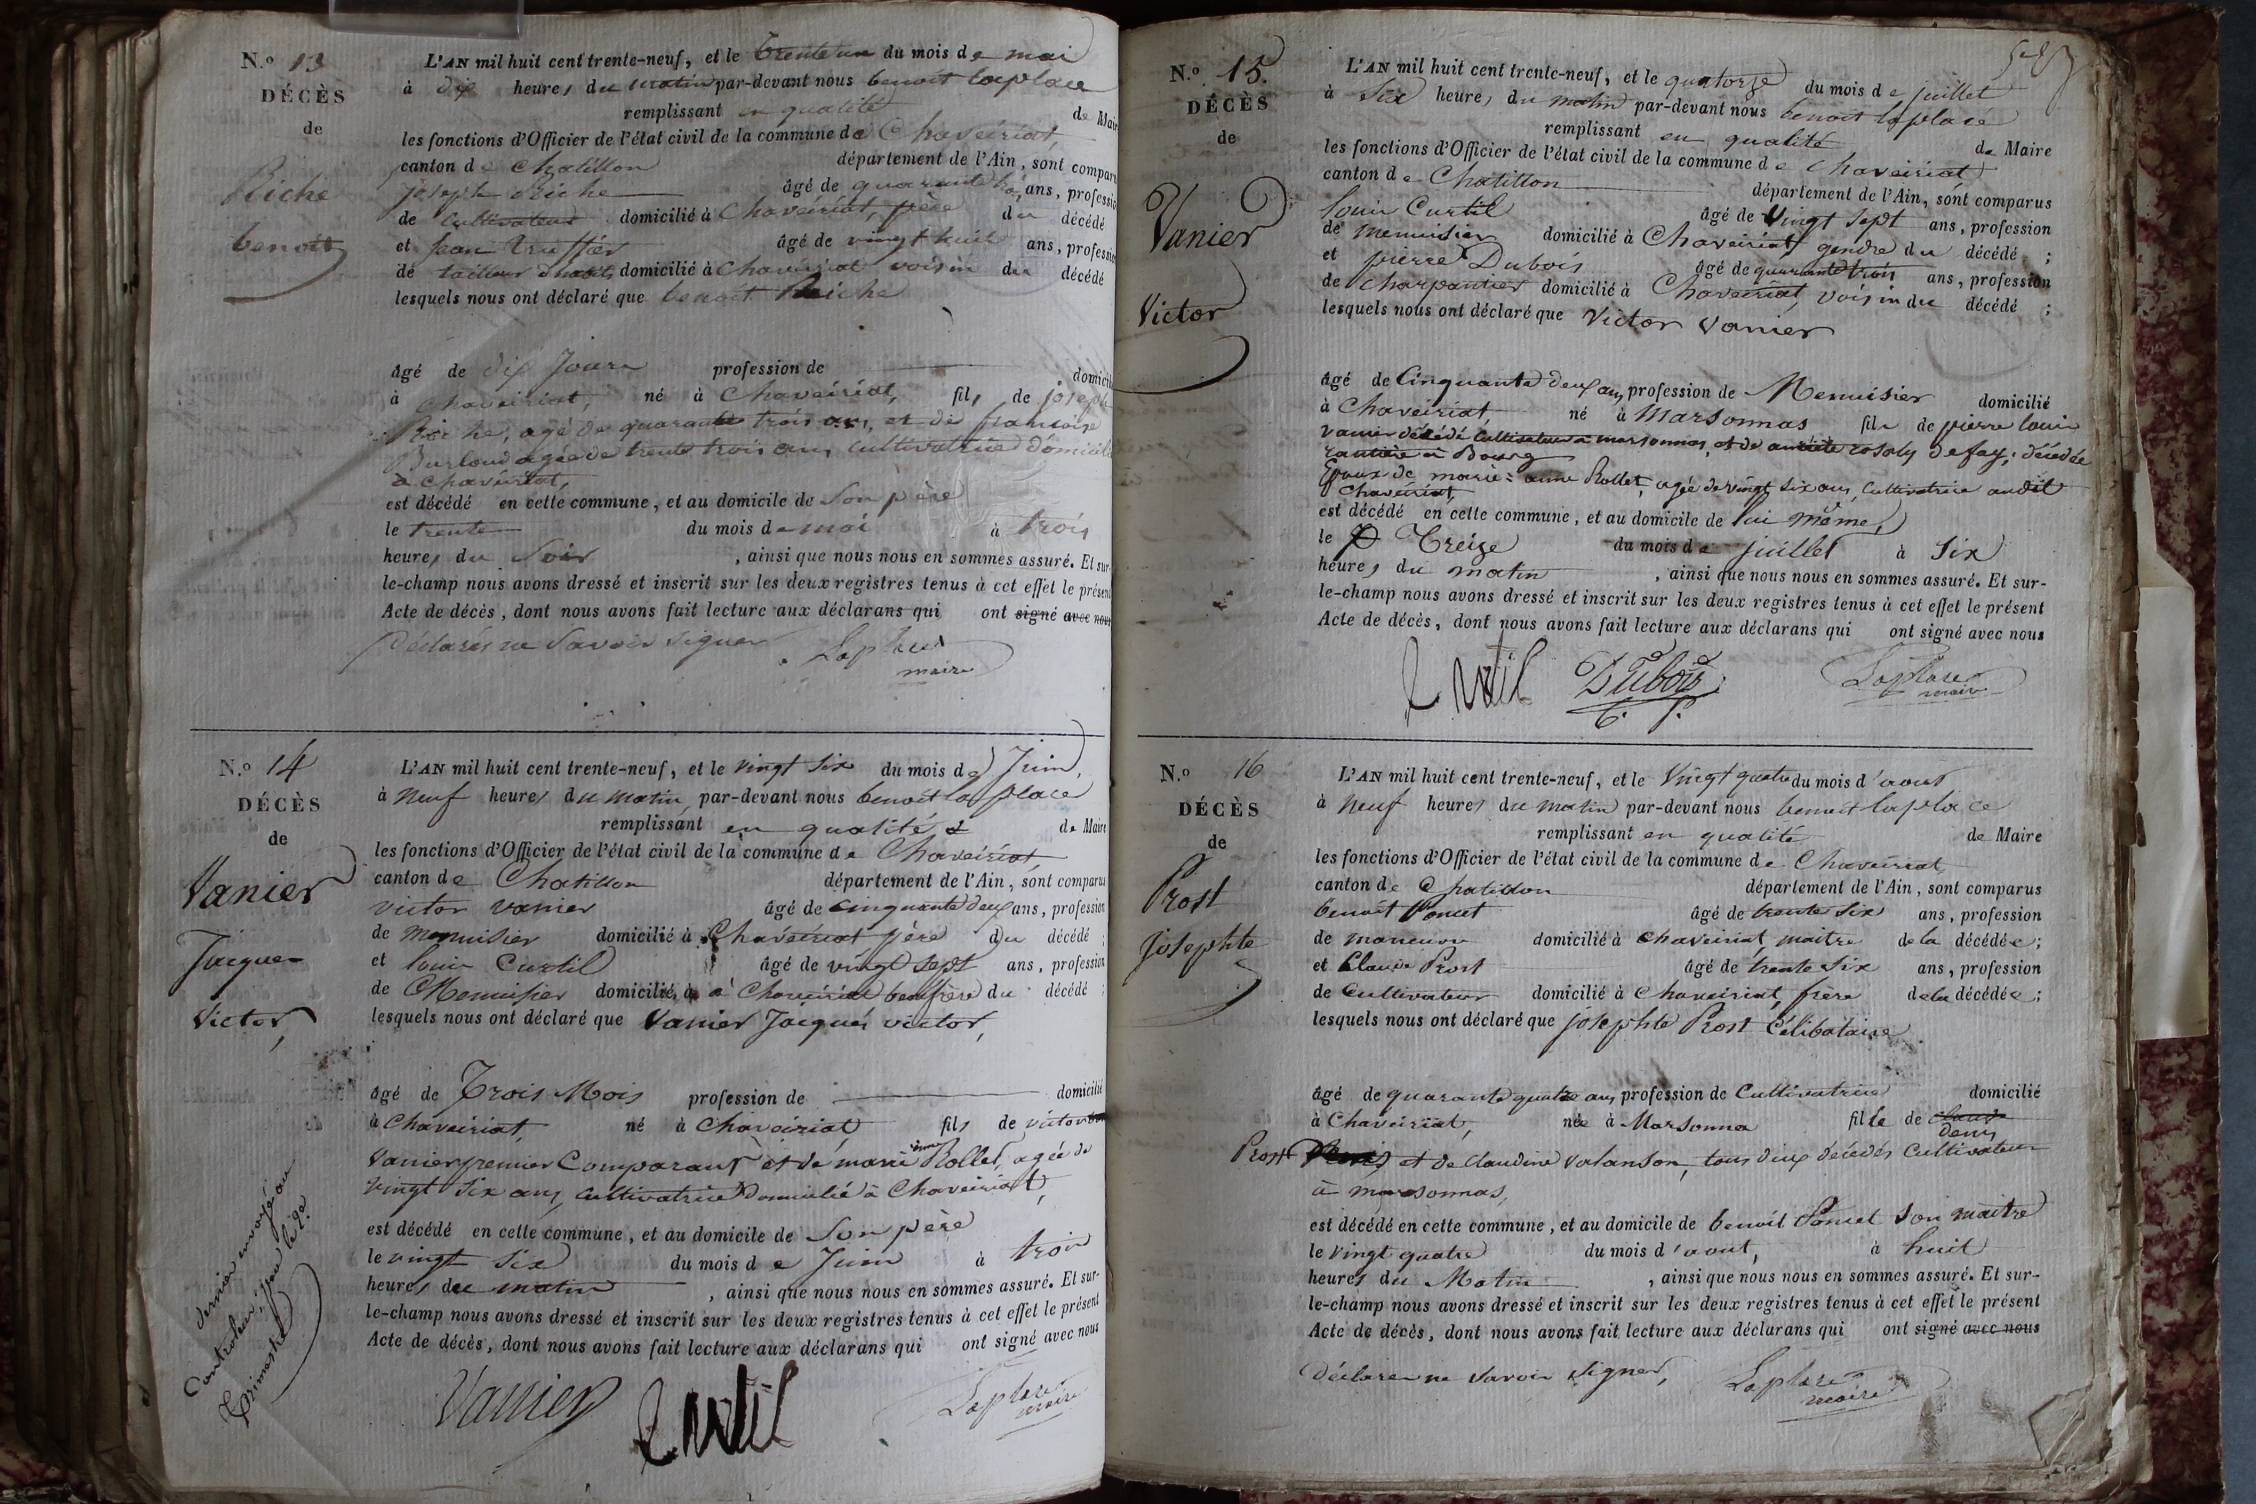 N.º 13
DÉCÈS
de
Riche
benoit
L'AN mil huit cent trente-neuf, et le trente un du mois de mai
à dix heures du matin par-devant nous benoit laplace
remplissant en qualité de Maire
les fonctions d'Officier de l'état civil de la commune de Chaveiriat,
canton de Chatillon département de l'Ain, sont comparus
joseph Riche âgé de quarante trois ans, profession
de Cultivateur domicilié à Chaveiriat, père du décédé
et Jean truffier âgé de vingt huit ans, profession
de tailleur d'habits domicilié à Chaveiriat voisin du décédé
lesquels nous ont déclaré que benoit Riche
âgé de dix Jours profession de domicilié
à Chaveiriat, né à Chaveiriat, fils de joseph
Riche, agé de quarante trois ans, et de francoise
Burloud agée de trente trois ans, cultivatrice domicilié
à chaveiriat,
est décédé en cette commune, et au domicile de Son père
le trente du mois de mai à trois
heures du Soir, ainsi que nous nous en sommes assuré. Et sur-
le-champ nous avons dressé et inscrit sur les deux registres tenus à cet effet le présent
Acte de décès, dont nous avons fait lecture aux déclarans qui ont signé avec nous
Déclarés ne Savoir signer Laplace
maire
N.º 14
DÉCÈS
de
Vanier
Jacques
Victor,
L'AN mil huit cent trente-neuf, et le vingt Six du mois de Juin,
à neuf heures du matin par-devant nous benoit laplace
remplissant en qualité de Maire
les fonctions d'Officier de l'état civil de la commune de Chaveiriat,
canton de Chatillon département de l'Ain, sont comparus
victor vanier âgé de cinquante deux ans, profession
de menuisier domicilié à Chaveiriat père du décédé;
et louis Curtil âgé de vingt sept ans, profession
de Menuisier domicilié à Chaveiriat beaufrère du décédé;
lesquels nous ont déclaré que Vanier Jacques victor,
âgé de Trois Mois profession de domicilié
à Chaveiriat, né à Chaveiriat fils de victor
Vanier premier Comparant et de marie anne Rollet, agée de
vingt Six ans, cultivatrice Domicilié à Chaveiriat,
est décédé en cette commune, et au domicile de Son père
le vingt Six du mois de Juin à trois
heures du matin, ainsi que nous nous en sommes assuré. Et sur-
le-champ nous avons dressé et inscrit sur les deux registres tenus à cet effet le présent
Acte de décès, dont nous avons fait lecture aux déclarans qui ont signé avec nous
Vanier Curtil Laplace
maire
dernier envoyé au
Controleur, pour le 2e
Trimestre
N.º 15.
DÉCÈS
de
Vanier
Victor
L'AN mil huit cent trente-neuf, et le quatorze du mois de juillet
à Six heures du matin par-devant nous benoit laplace
remplissant en qualité de Maire
les fonctions d'Officier de l'état civil de la commune de Chaveiriat
canton de Chatillon département de l'Ain, sont comparus
louis Curtil âgé de Vingt sept ans, profession
de menuisier domicilié à Chaveiriat gendre du décédé;
et pierre Dubois âgé de quarante trois ans, profession
de charpentier domicilié à Chaveiriat, voisin du décédé;
lesquels nous ont déclaré que Victor Vanier
âgé de Cinquante deux ans profession de Menuisier domicilié
à Chaveiriat né à Marsonnas fils de pierre louis
vanier décédé Cultivateur à marsonnas, et de rosaly defay; décédée
rentière à Bourg
Epoux de marie anne Rollet, agée de vingt six ans, Cultivatrice audit
Chaveiriat,
est décédé en cette commune, et au domicile de lui même,
le Treize du mois de juillet à Six
heures du matin, ainsi que nous nous en sommes assuré. Et sur-
le-champ nous avons dressé et inscrit sur les deux registres tenus à cet effet le présent
Acte de décès, dont nous avons fait lecture aux déclarans qui ont signé avec nous
Curtil Dubois Laplace
maire
N.º 16
DÉCÈS
de
Prost
Josephte
L'AN mil huit cent trente-neuf, et le Vingt quatre du mois d'aout
à neuf heures du matin par-devant nous benoit laplace
remplissant en qualité de Maire
les fonctions d'Officier de l'état civil de la commune de Chaveiriat
canton de Chatillon département de l'Ain, sont comparus
benoit Poncet âgé de trente six ans, profession
de domicilié à Chaveiriat, maitre de la décédée;
et Claude Prost âgé de trente Six ans, profession
de Cultivateur domicilié à Chaveiriat, frère de la décédée;
lesquels nous ont déclaré que josephte Prost Célibataire
âgé de quarante quatre ans profession de Cultivatrice domicilié
à Chaveiriat, née à Marsonnas fille de claude
denis
Prost et de Claudine Valanson, tous deux décédés Cultivateur
à marsonnas,
est décédé en cette commune, et au domicile de benoit Poncet Son maitre
le vingt quatre du mois d'aout, à huit
heures du Matin, ainsi que nous nous en sommes assuré. Et sur-
le-champ nous avons dressé et inscrit sur les deux registres tenus à cet effet le présent
Acte de décès, dont nous avons fait lecture aux déclarans qui ont signé avec nous
Déclaré ne Savoir Signer, Laplace
maire